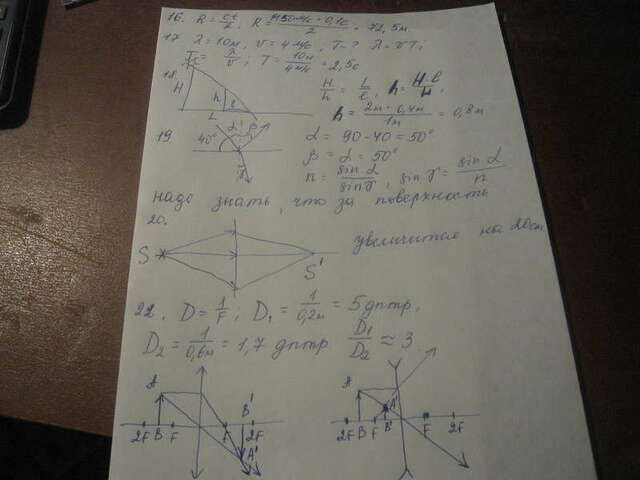 16. R = ct/2, R = 1450м/с · 0,1с / 2 = 72,5м.
17 λ = 10м, v = 4м/с, T - ? λ = vT;
T = λ/v; T = 10м / 4м/с = 2,5с
18. H h l L H/h = L/l, h = H l / L,
h = 2м · 0,4м / 1м = 0,8м
19. 40° α β γ α = 90 - 40 = 50°
β = α = 50°
n = sin α / sin γ, sin γ = sin α / n
надо знать, что за поверхность
20.
S S' увеличится на 20см
22. D = 1/F; D₁ = 1/0,2м = 5дптр,
D₂ = 1/0,6м = 1,7 дптр D₁/D₂ ≈ 3
A B' A A'
2F B F F 2F 2F B F B' F 2F
A'